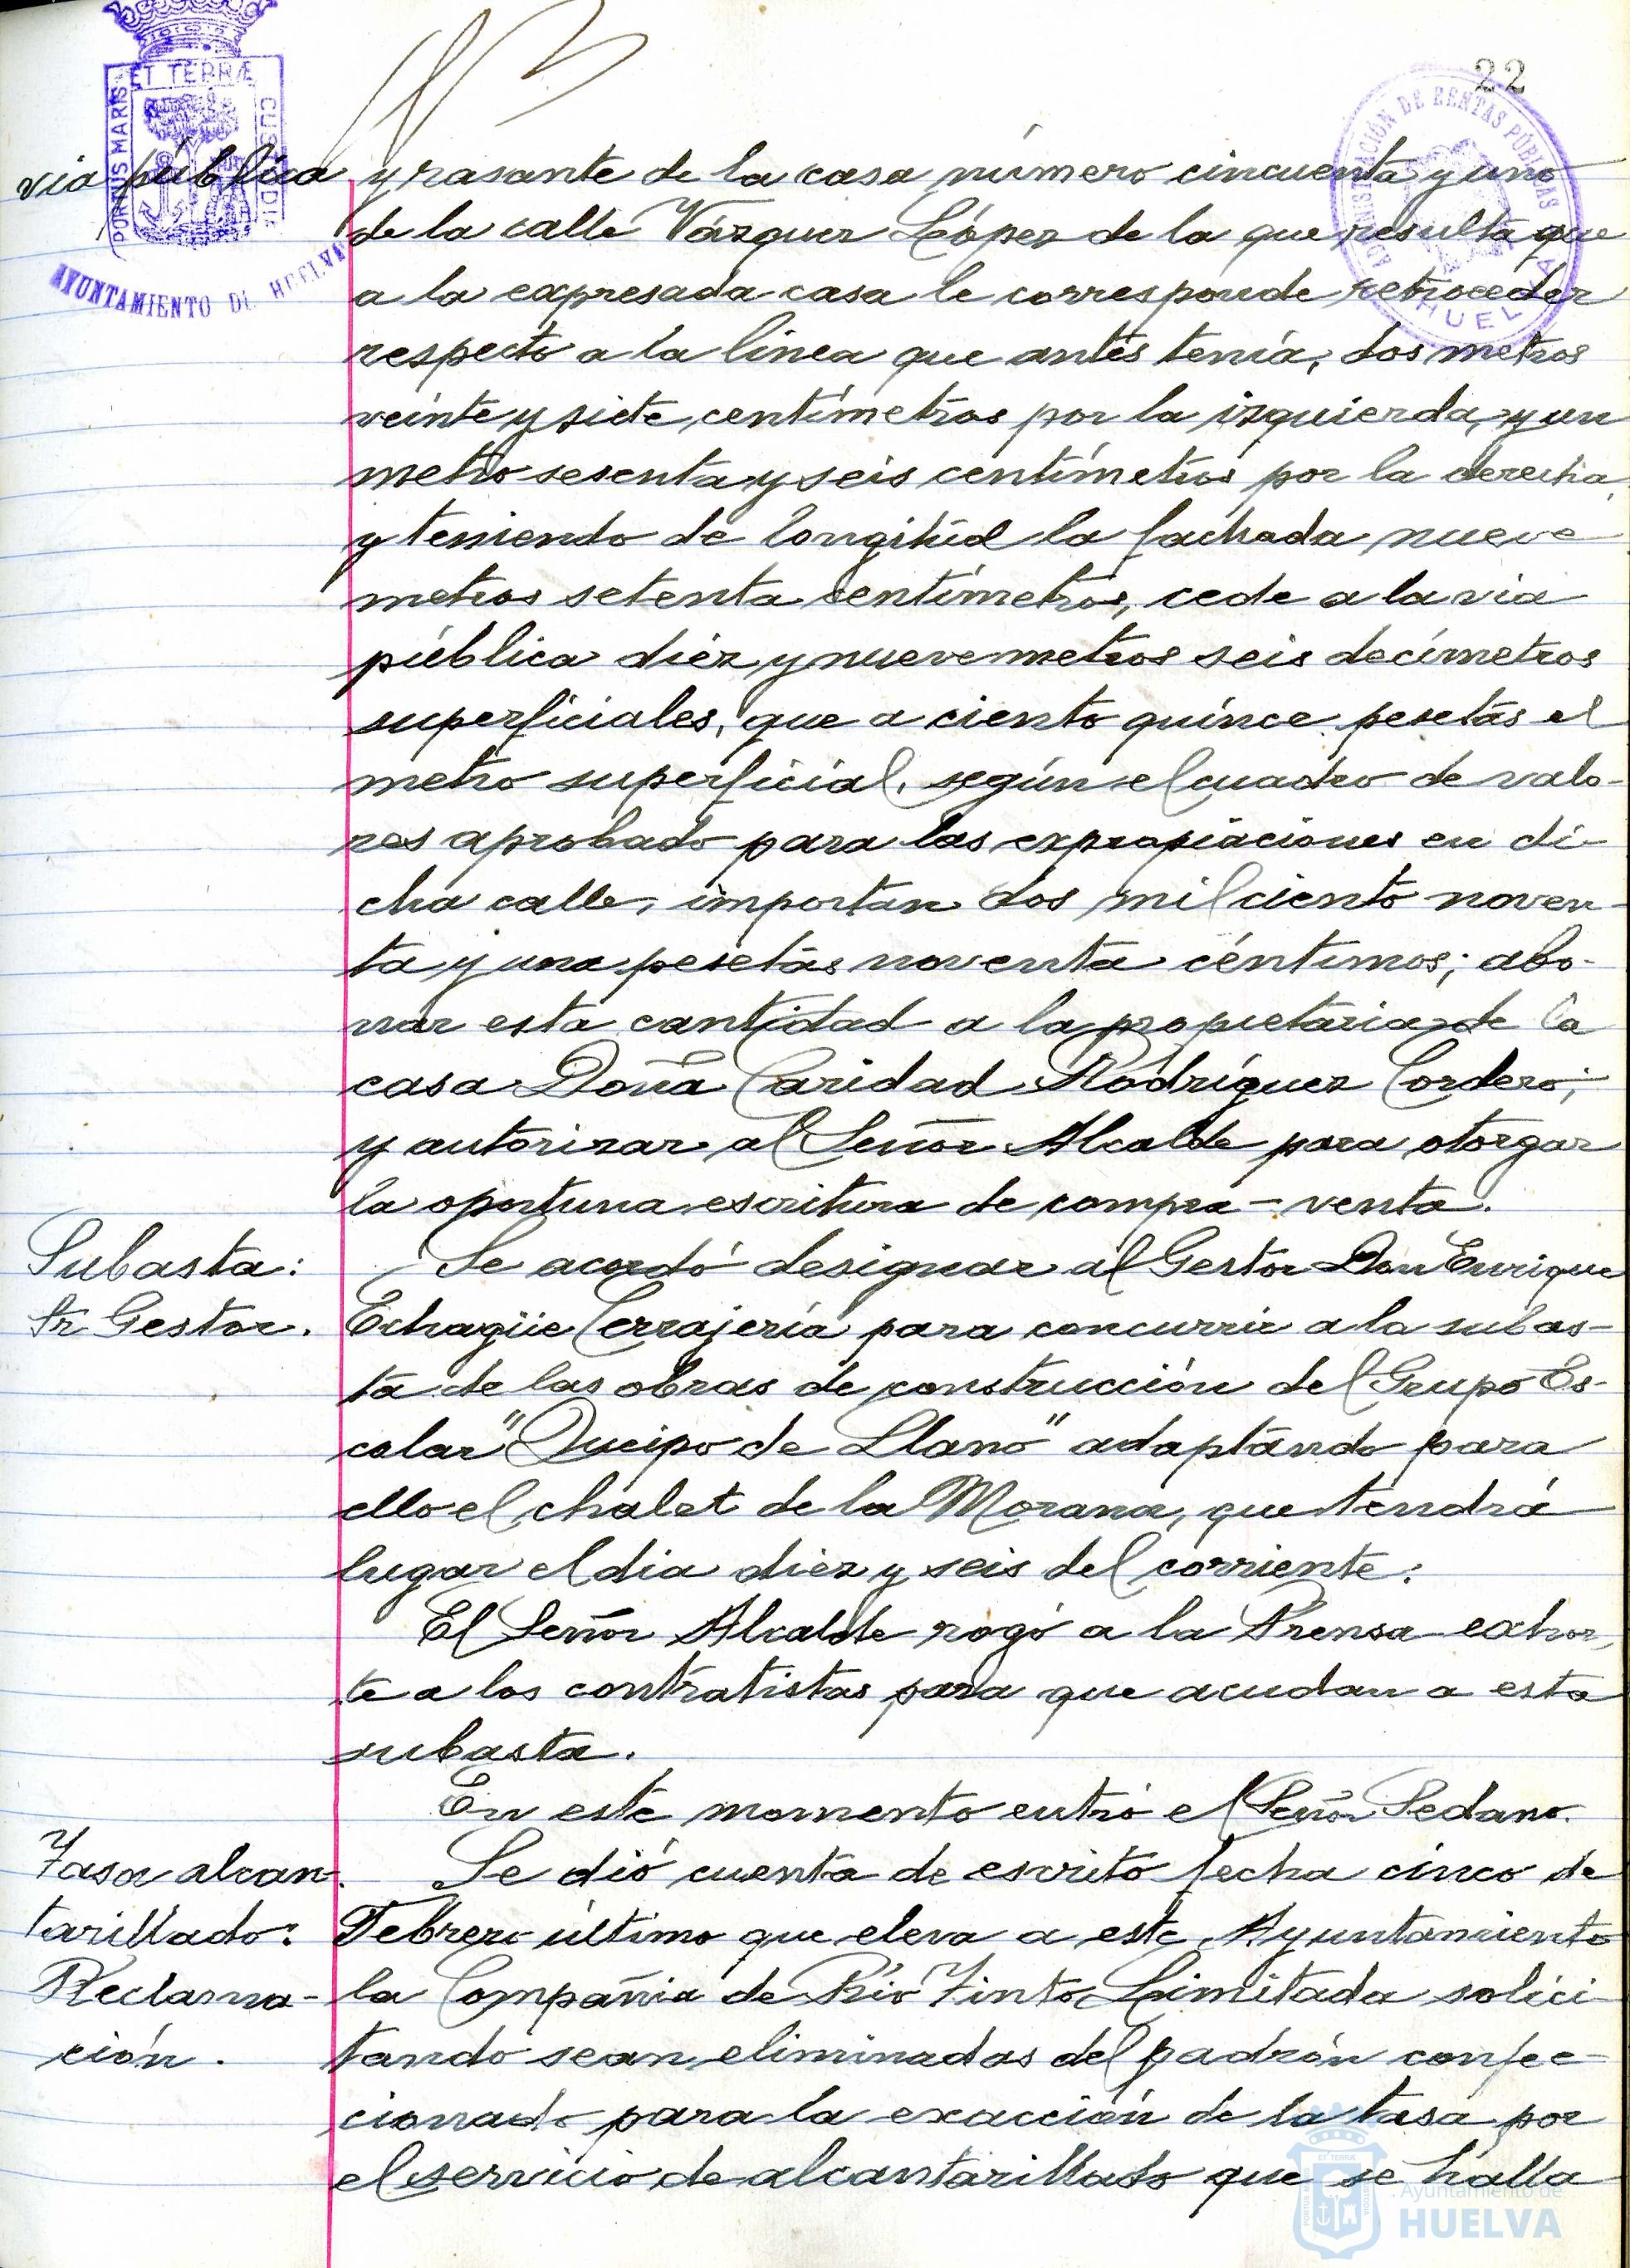 22
ET TERRÆ
PORTUS MARIS
CUSTODIA
AYUNTAMIENTO DE HUELVA
ADMINISTRACIÓN DE RENTAS PÚBLICAS
HUELVA
via pública y rasante de la casa número cincuenta y uno
de la calle Vázquez López de la que resulta que
a la expresada casa le corresponde retroceder
respecto a la linea que antes tenía, dos metros
veinte y siete centímetros por la izquierda, y un
metro sesenta y seis centímetros por la derecha,
y teniendo de longitud la fachada nueve
metros setenta centímetros, cede a la via
pública diez y nueve metros seis decímetros
superficiales, que a ciento quince pesetas el
metro superficial, según el cuadro de valo-
res aprobado para las expropiaciones en di-
cha calle, importan dos mil ciento noven-
ta y una pesetas noventa céntimos; abo-
nar esta cantidad a la propietaria de la
casa Doña Caridad Rodríguez Cordero;
y autorizar al Señor Alcalde para otorgar
la oportuna escritura de compra-venta.
Subasta:
Sr Gestor.
Se acordó designar al Gestor Don Enrique
Echagüe Cerrajería para concurrir a la subas-
ta de las obras de construcción del Grupo Es-
colar "Queipo de Llano" adaptándo para
ello el chalet de la Morana, que tendrá
lugar el dia diez y seis del corriente.
El Señor Alcalde rogó a la Prensa exhor-
te a los contratistas para que acudan a esta
subasta.
En este momento entró el Señor Sedano.
Tasa alcan-
tarillado:
Reclama-
ción.
Se dió cuenta de escrito fecha cinco de
Febrero último que eleva a este Ayuntamiento
la Compañia de Rio Tinto Limitada solici-
tando sean eliminadas del padrón confec-
cionado para la exacción de la tasa por
el servicio de alcantarillado que se halla
Ayuntamiento de
HUELVA